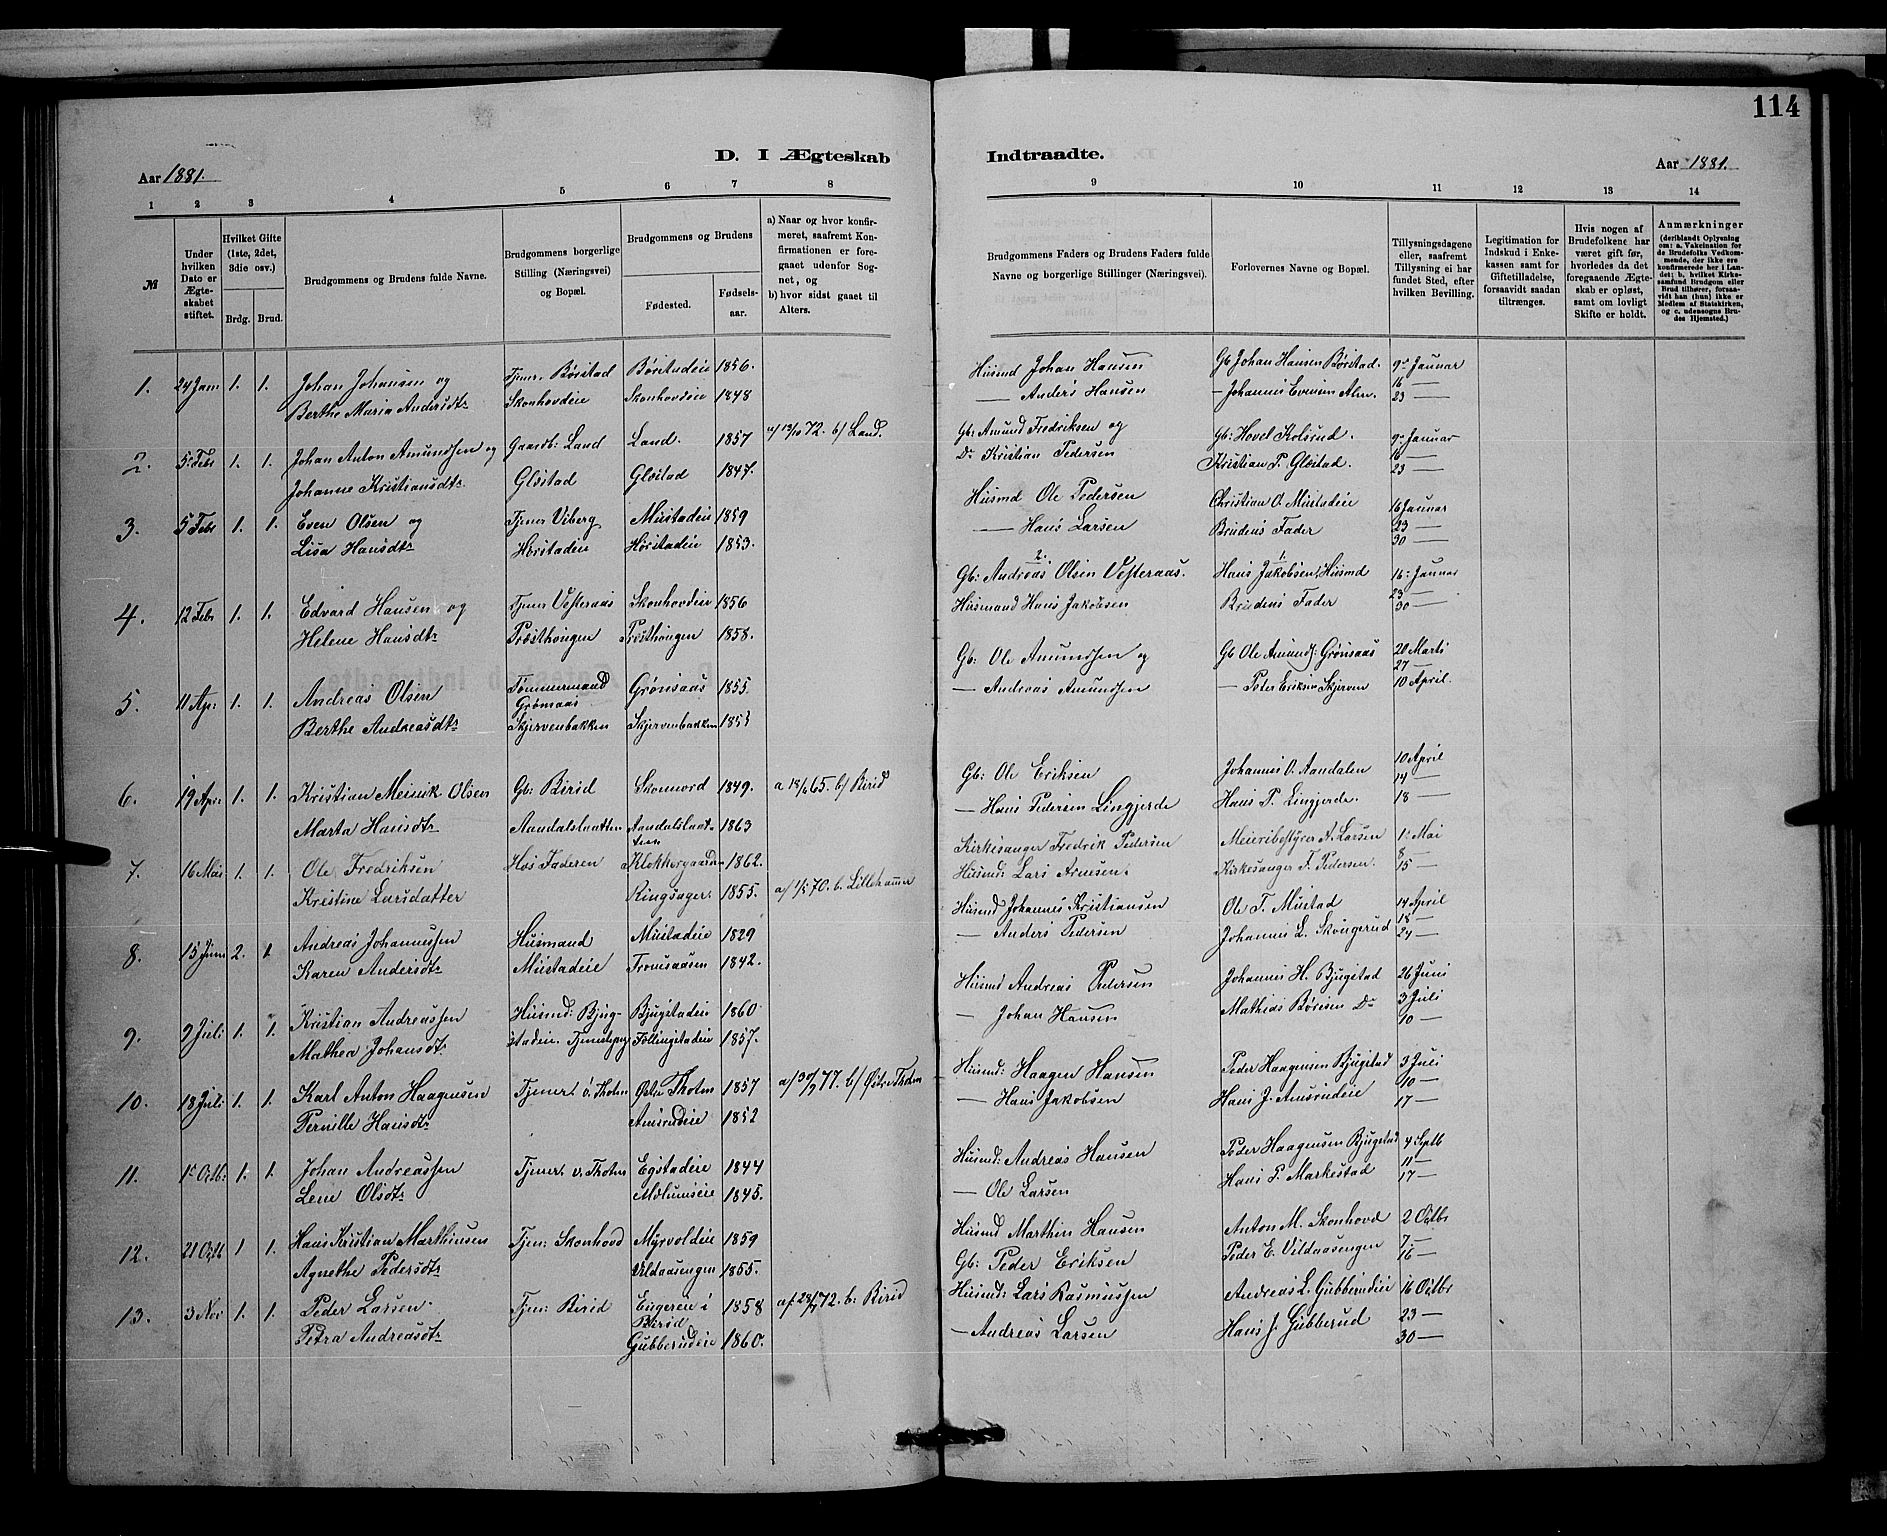 114
D. I Ægteskab Indtraadte.
Aar 1881. Aar 1881.
1 2 3 4 5 6 7 8 9 10 11 12 13 14
№
Under hvilken Dato er Ægteskabet stiftet.
Hvilket Gifte (1ste, 2det, 3die osv.)
Brdg. Brud.
Brudgommens og Brudens fulde Navne.
Brudgommens borgerlige Stilling (Næringsvei) og Bopæl.
Brudgommens og Brudens
Fødested. Fødselsaar.
a) Naar og hvor konfirmeret, saafremt Konfirmationen er foregaaet udenfor Sognet, og
b) hvor sidst gaaet til Alters.
Brudgommens Faders og Brudens Faders fulde Navne og borgerlige Stillinger (Næringsvei).
Forlovernes Navne og Bopæl.
Tillysningsdagene eller, saafremt Tillysning ei har fundet Sted, efter hvilken Bevilling.
Legitimation for Indskud i Enkekassen samt for Giftetilladelse, forsaavidt saadan tiltrænges.
Hvis nogen af Brudefolkene har været gift før, hvorledes da det foregaaende Ægteskab er opløst, samt om lovligt Skifte er holdt.
Anmærkninger (deriblandt Oplysning om: a. Vakcination for de Brudefolks Vedkommende, der ikke ere konfirmerede her i Landet; b. hvilket Kirkesamfund Brudgom eller Brud tilhører, forsaavidt han (hun) ikke er Medlem af Statskirken, og c. udensogns Brudes Hjemsted.)
1. 24 Jan 1. 1. Johan Johansen og Tjener Børstad Børstadeie 1856. Husmd Johan Hansen Gb Johan Hansen Børstad. 9de Januar
Berthe Maria Andersdtr Skonhovdeie Skonhovdeie 1848 — Anders Hansen — Johannes Evensen Alm. 16 — 23 —
2. 5 Febr 1. 1. Johan Anton Amundsen og Gaardb: Land Land. 1857 a/ 13/10 72. b/ Land. Gb: Amund Fredriksen og Gb: Hovel Kolsrud. 9de Januar
Johanne Kristiansdtr Glæstad Glæstad 1847. Do Kristian Pedersen Kristian P. Glæstad. 16 — 23 —
3. 5 Febr 1. 1. Even Olsen og Tjener Viberg Mustadeie 1859 Husmd Ole Pedersen Christian O. Mustadeie 16 Januar
Lisa Hansdtr Hørstadeie Hørstadeie 1853. — Hans Larsen Brudens Fader 23 — 30 —
4. 12 Febr 1. 1. Edvard Hansen og Tjener Vesteraas Skonhovdeie 1856 Gb: Andreas Olsen Vesteraas. 2. Hans Jakobsen, Husmd 1. 16 Januar
Helene Hansdtr Præsthaugen Præsthaugen 1858. Husmand Hans Jakobsen Brudens Fader 23 — 30 —
5. 11 Apr: 1. 1. Andreas Olsen Tømmermand Grønsaas Grønsaas 1855. Gb: Ole Amundsen og Gb Ole Amunds: Grønsaas 20 Marts
Berthe Andreasdtr Skjervenbakken Skjervenbakken 1853 — Andreas Amundsen — Peder Eriksen Skjerven 27 — 10 April
6. 19 Apr: 1. 1. Kristian Meinik Olsen Gb: Birid Skonnord 1849. a 18/6 65. b/ Birid Gb: Ole Eriksen Johannes O. Aandalen 10 April
Marta Hansdtr Aandalslaatten Aandalslaatten 1863 — Hans Pedersen Lingjerde Hans P. Lingjerde. 14 — 18 —
7. 16 Mai 1. 1. Ole Fredriksen Hos Faderen Klokkergaarden 1862. Kirkesanger Fredrik Pedersen Meieribestyrer A. Larsen 1ste Mai
Kristine Larsdatter Ringsager. 1855. a/ 1/5 70. b. Lillehamer Husmd: Lars Arnesen. Kirkesanger F. Pedersen. 8 — 15 —
8. 15 Juni 2. 1 Andreas Johannessen Husmand Mustadeie 1829 Husmd Johannes Kristiansen Ole T. Mustad 14 April
Karen Andersdtr Mustadeie Tronsaasen 1842. — Anders Pedersen Johannes L. Skougerud 18 — 24 —
9. 9 Juli 1. 1. Kristian Andreassen Husmd: Bjugstadeie. Bjugstadeie 1860 Husmd Andreas Pedersen Johannes H. Bjugstad 26 Juni
Mathea Johansdtr Tjenestepige Føllingstadeie 1857. — Johan Hansen Mathias Børesen Do 3 Juli 10 —
10. 18 Juli 1. 1. Karl Anton Haagensen Tjener Ø. Thoten Østre Thoten 1857 a/ 30/9 77. b/ Østre Thoten Husmd: Haagen Hansen Peder Haagensen Bjugstad 3 Juli
Pernille Hansdtr Amsrudeie 1852 — Hans Jakobsen Hans J. Amsrudeie 10 — 17 —
11. 1ste Octbr. 1. 1. Johan Andreassen Tjener. v. Thoten Egstadeie 1844 Husmd: Andreas Hansen Peder Haagensen Bjugstad 4 Septb
Lene Olsdtr Mælumseie 1845. — Ole Larsen Hans P. Markestad 11 — 17 —
12. 21 Octb 1 1. Hans Kristian Marthinsen Tjen: Skonhovd Myrvoldeie 1859 Husmd Marthin Hansen Anton M. Skonhovd 2 Octbr
Agnethe Pedersdtr Vildaasengen 1855. Gb: Peder Eriksen Peder E. Vildaasengen 7 — 16 —
13. 3 Nov 1. 1. Peder Larsen Tjen: Birid Engereie i Birid 1858 a/ 28/7 72. b: Birid Husmd: Lars Rasmussen Andreas L. Gubberudeie 16 Octbr
Petra Andreasdtr Gubberudeie 1860. — Andreas Larsen Hans J. Gubberud 23 — 30 —